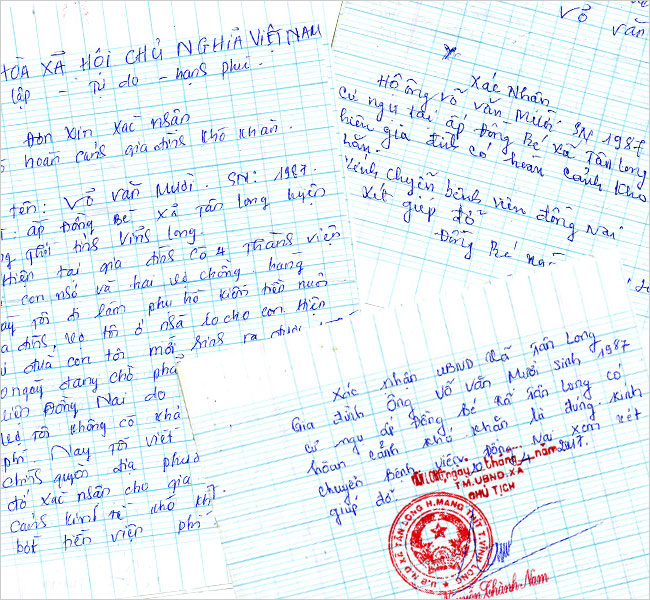 HÒA XÃ HỘI CHỦ NGHĨA VIỆT NAM
lập - Tự do - hạnh phúc
Đơn xin xác nhận
hoàn cảnh gia đình khó khăn.
tên: Võ Văn Mười. SN: 1987.
ấp Đồng Bé xã Tân Long huyện
thít tỉnh Vĩnh Long
Hiện tại gia đình có 4 thành viên
con nhỏ và hai vợ chồng. hàng
tôi đi làm phụ hồ kiếm tiền nuôi
gia đình, vợ tôi ở nhà lo cho con Hiện
đứa con tôi mới sinh ra được
ngày đang chờ phẩ
viện Đồng Nai do
vợ tôi không có khả
phí Nay tôi viết
chính quyền địa phươ
đó xác nhận cho gia
cảnh kinh tế khó kh
bớt tiền viện phí
Võ Văn
Xác Nhận
Hộ ông Võ Văn Mười SN 1987
Cư ngụ tại ấp Đồng Bé xã Tân Long
hiện gia đình có hoàn cảnh khó
khăn.
Kính chuyển bệnh viện đồng Nai
xét giúp đỡ
Đồng Bé
Xác nhận UBND Xã Tân Long
Gia đình Ông Võ Văn Mười sinh 1987
cư ngụ ấp Đồng Bé xã Tân Long có
hoàn cảnh khó khăn là đúng kính
chuyển Bệnh viện Đồng Nai xem xét
giúp đỡ
ngày 20 tháng 4 năm 2017.
TM.UBND.XÃ
CHỦ TỊCH
U.B.N.D XÃ TÂN LONG H.MANG THÍT T.VĨNH LONG
Thành Nam